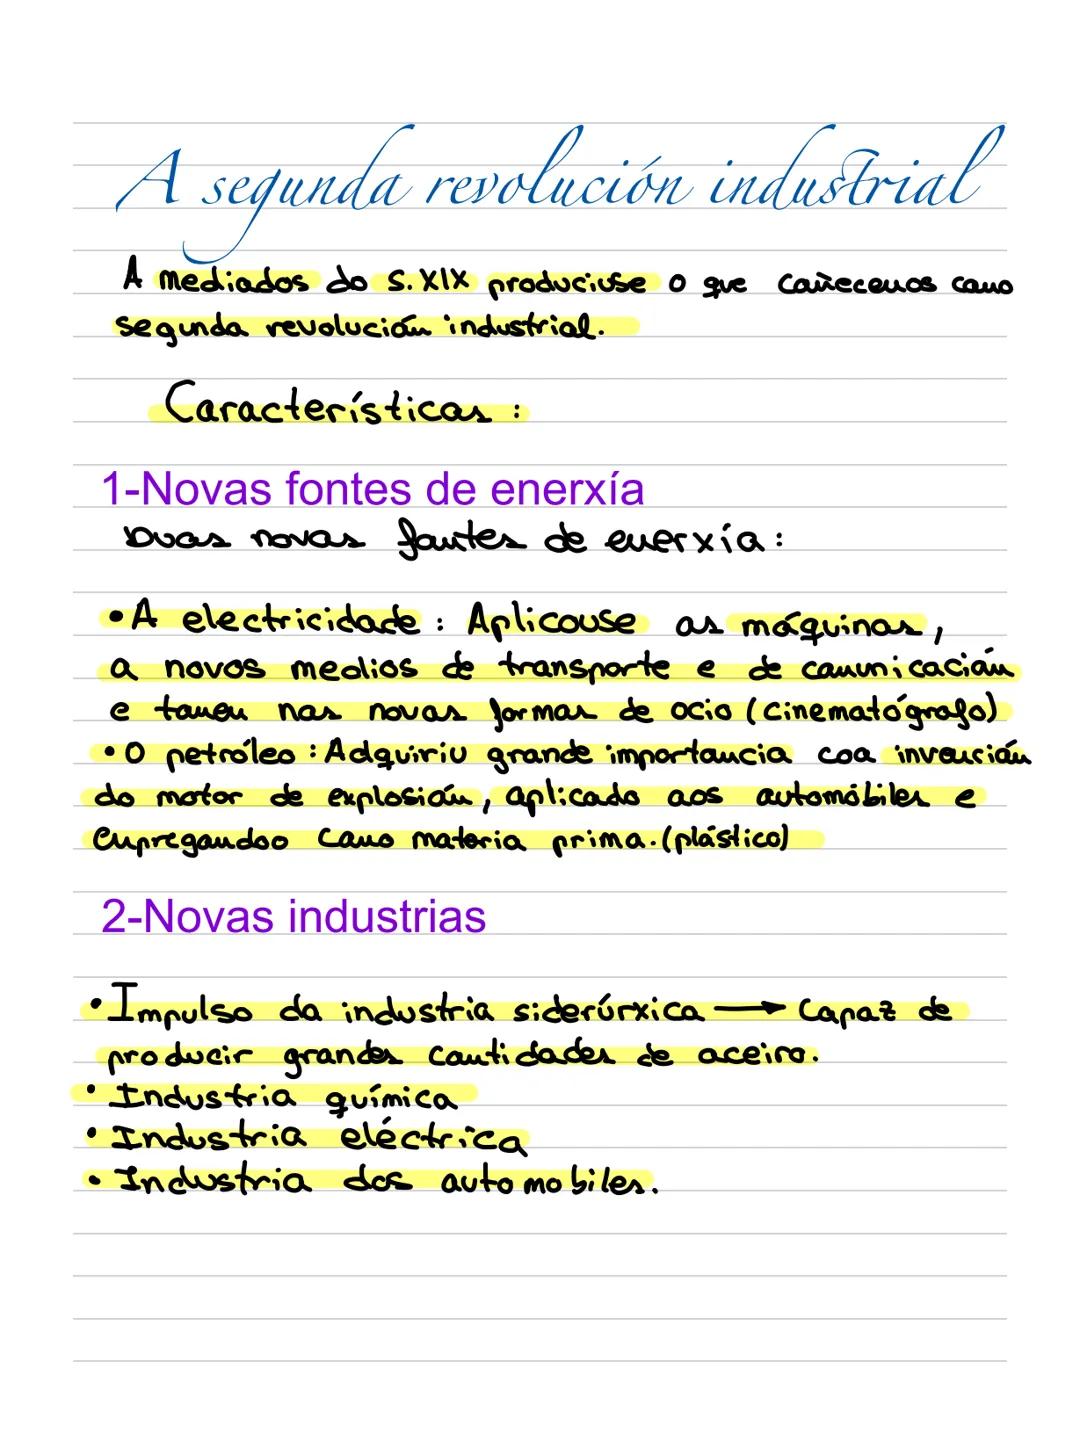 A segunda revolución industrial
A mediados do S. XIX produciuse o que coñecemos como
segunda revolución industrial.
Características :
1-Novas fontes de enerxía
Duas novas fontes de enerxía :
•A electricidade : Aplicouse as máquinas,
a novos medios de transporte e de comunicación
e tamén nas novas formas de ocio (cinematógrafo)
•O petróleo : Adquiriu grande importancia coa invención
do motor de explosión, aplicado aos automóbiles e
empregandoo como materia prima. (plástico)
2-Novas industrias
•Impulso da industria siderúrxica → Capaz de
producir grandes cantidades de aceiro.
• Industria química
• Industria eléctrica
• Industria dos automobiles.